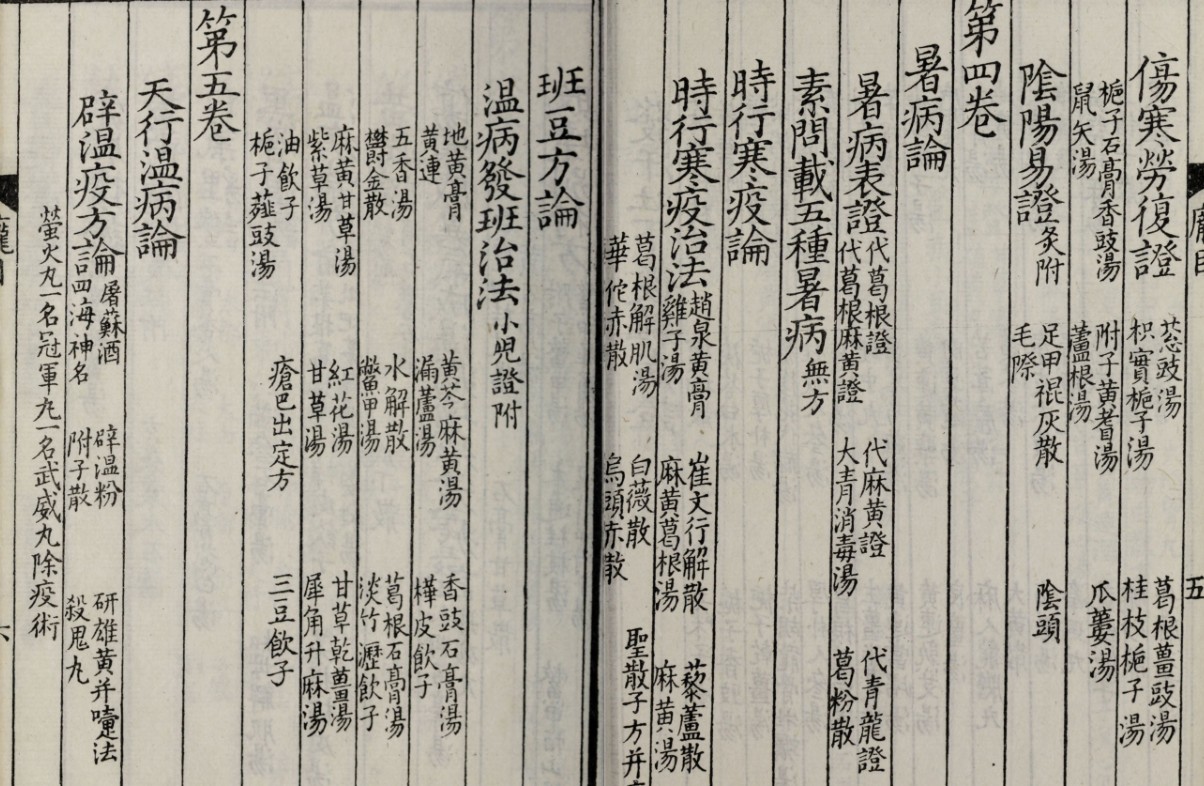 傷寒勞復證 葱豉湯 葛根薑豉湯
枳實梔子湯 桂枝梔子湯
梔子石膏香豉湯 附子黃耆湯 瓜蔞湯
鼠矢湯 蘆根湯
陰陽易證灸附 足甲裩灰散 陰頭
毛際
第四卷
暑病論
暑病表證 代葛根證 代麻黃證 代青龍證
代葛根麻黃證 大青消毒湯 葛粉散
素問載五種暑病無方
時行寒疫論
時行寒疫治法 趙泉黃膏 崔文行解散 藜蘆散
雞子湯 麻黃葛根湯 麻黃湯
葛根解肌湯 白薇散 聖散子方并
華佗赤散 烏頭赤散
斑豆方論
溫病發斑治法小兒證附
地黃膏 黃芩麻黃湯 香豉石膏湯
黃連 漏蘆湯 樺皮飲子
五香湯 水解散 葛根石膏湯
欝金散 鱉甲湯 淡竹瀝飲子
麻黃甘草湯 紅花湯 甘草乾薑湯
紫草湯 甘草湯 犀角升麻湯
油飲子 瘡巴出定方 三豆飲子
梔子薤豉湯
第五卷
天行溫病論
辟溫疫方論 屠蘇酒 辟溫粉 研雄黃并嚏法
四海神名 附子散 殺鬼丸
螢火丸一名冠軍丸一名武威丸除疫術